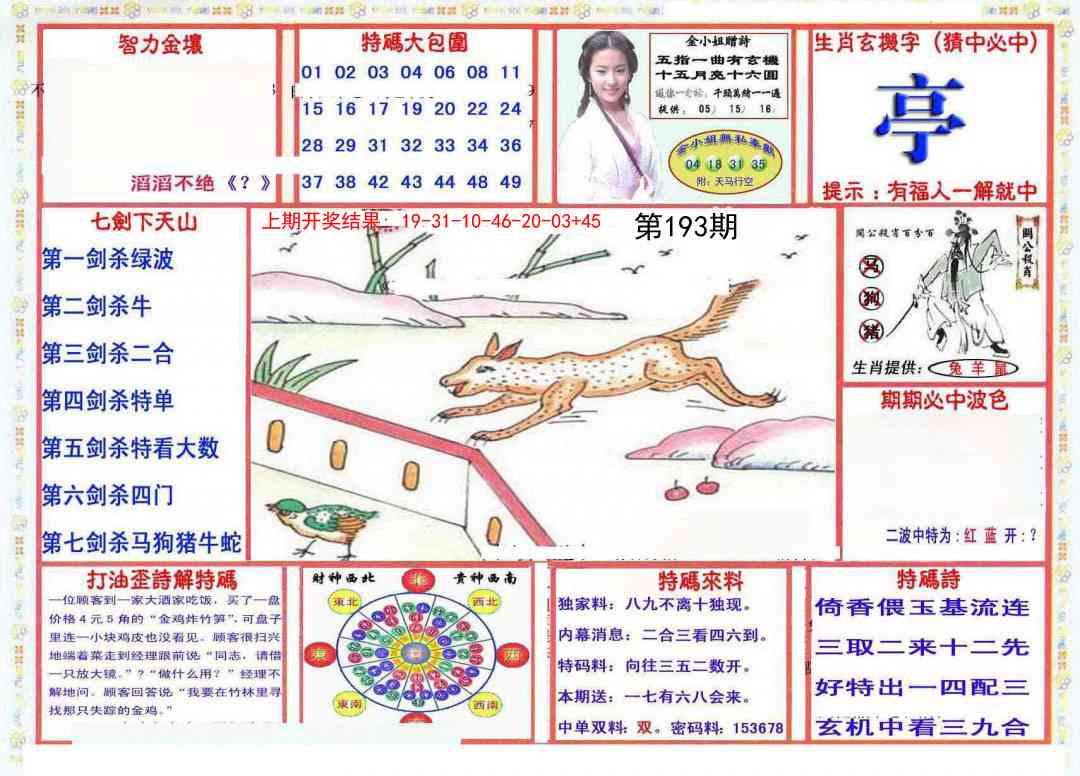 智力金壤
滔滔不绝《？》
特碼大包圍
01 02 03 04 06 08 11
15 16 17 19 20 22 24
28 29 31 32 33 34 36
37 38 42 43 44 48 49
金小姐贈詩
五指一曲有玄機
十五月亮十六圓
千頭萬緒一一過
提供：05） 15） 16
金小姐無私奉獻
04 18 31 35
附：天马行空
生肖玄機字（猜中必中）
亭
提示：有福人一解就中
七劍下天山
第一剑杀绿波
第二剑杀牛
第三剑杀二合
第四剑杀特单
第五剑杀特看大数
第六剑杀四门
第七剑杀马狗猪牛蛇
上期开奖结果：19-31-10-46-20-03+45
第193期
関公殺宵百分百
马
狗
猪
關公殺肖
生肖提供：
兔 羊 鼠
期期必中波色
二波中特为：红 蓝 开：？
打油歪詩解特碼
一位顾客到一家大酒家吃饭，买了一盘
价格4元5角的“金鸡炸竹笋”，可盘子
里连一小块鸡皮也没看见。顾客很扫兴
地端着菜走到经理跟前说“同志，请借
一只放大镜。”？“做什么用？”经理不
解地问。顾客回答说“我要在竹林里寻
找那只失踪的金鸡。”
財神西北
貴神西南
北
東北
西北
東
西
東南
西南
特碼來料
独家料：八九不离十独现。
内幕消息：二合三看四六到。
特码料：向往三五二数开。
本期送：一七有六八会来。
中单双料：双。密码料：153678
特碼詩
倚香偎玉基流连
三取二来十二先
好特出一四配三
玄机中看三九合